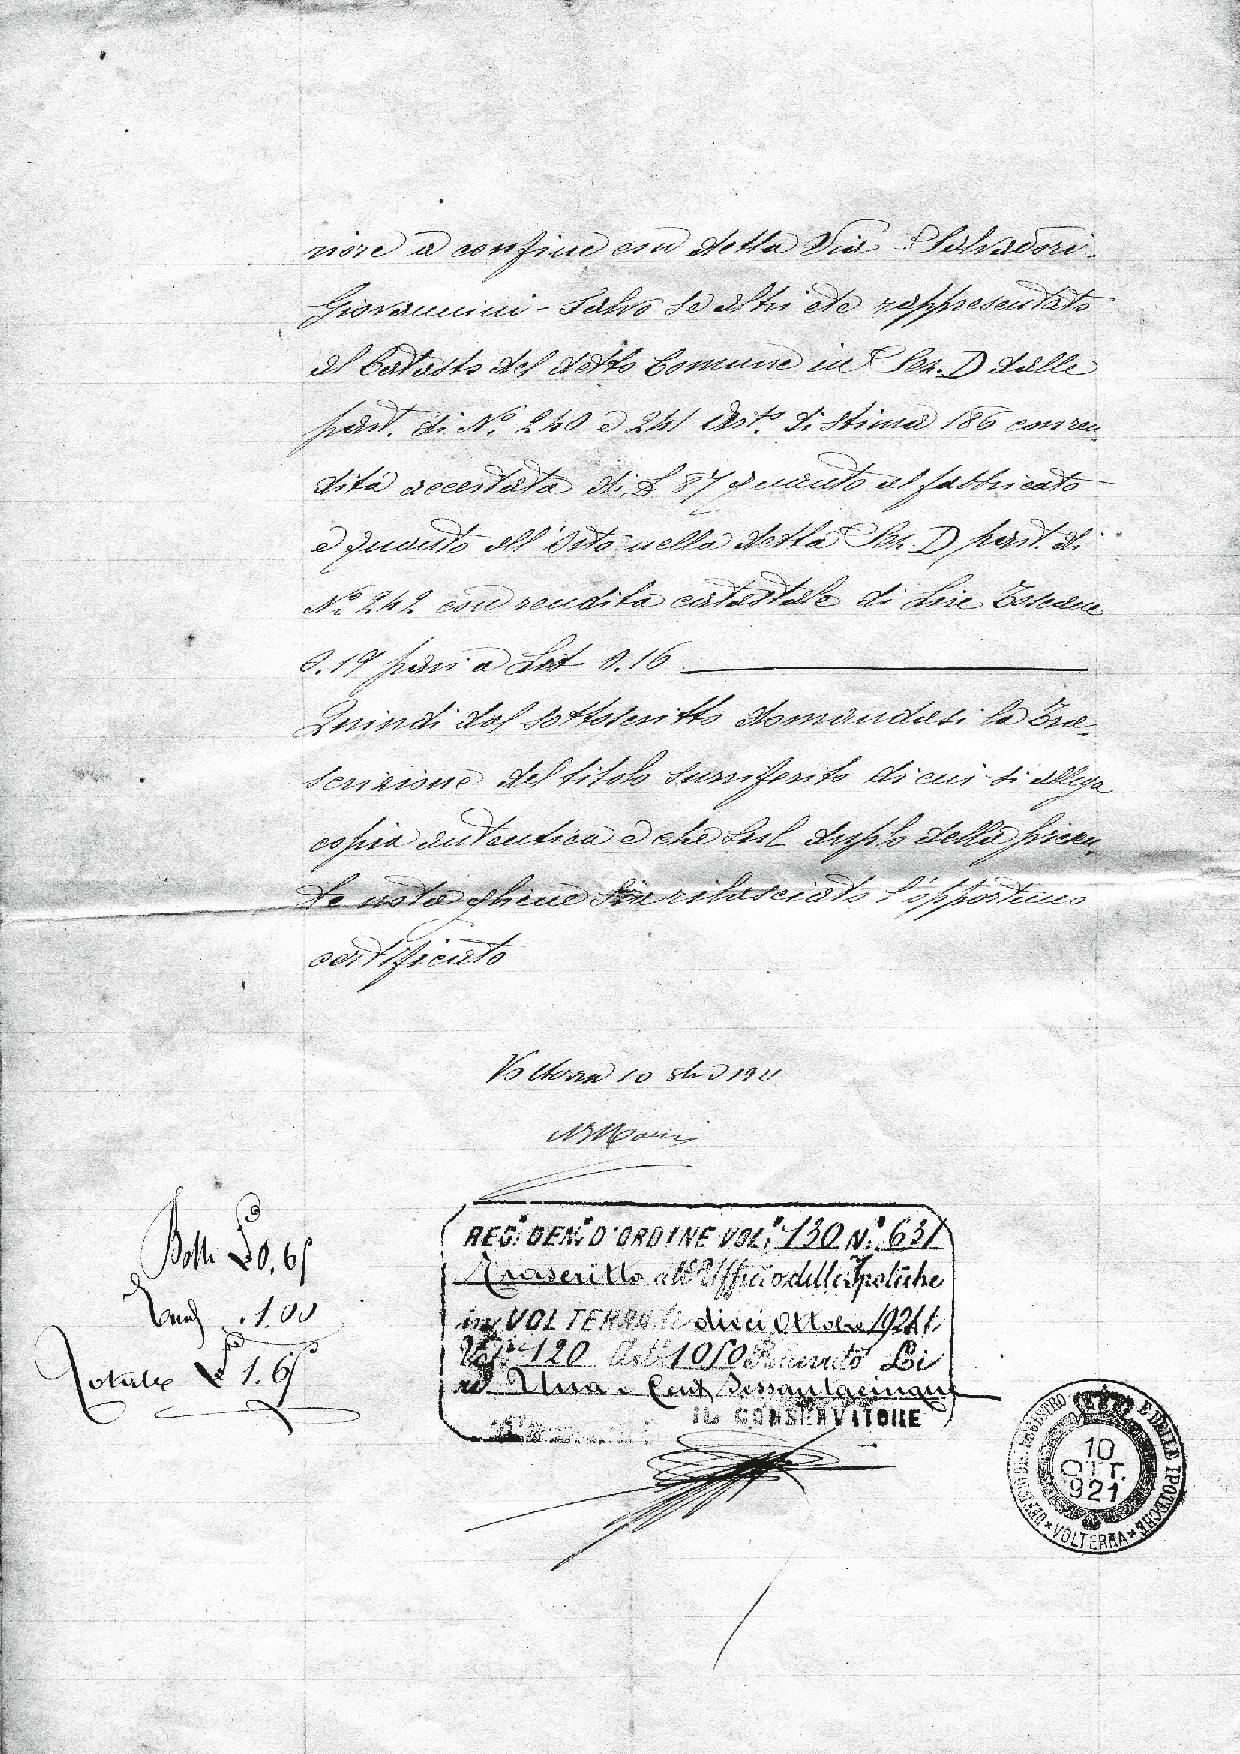 nore a confine con detta Via - Salvadori -
Giovannini - Salvo se altri ete rappresentato
al Catasto del detto Comune in Sez. D dalle
part. di Nº 240 e 241 Artº di stima 186 con ren,
dita accertata di £ 87 quanto al fabbricato -
e quanto all'Orto nella detta Sez. D part. di
Nº 242 con rendita catastale di Lire Toscane
0.19 pari a Lit 0.16
Quindi dal sottoscritto domandasi la Tra,
scrizione del titolo surriferito di cui si allega
copia autentica e che sul duplo della presen,
te nota gliene sia rilasciato l'opportuno
certificato
Volterra 10 8bre 1921
Bolli £ 0,65
1.00
Totale £ 1.65
REG. GEN. D'ORDINE VOL. 130 N. 631
Trascritto all'Ufficio delle Ipoteche
in VOLTERRA li dieci Ottobre 1921
Vol. 120 Art. 1050 Li
re Una e Cent. Sessantacinque
IL CONSERVATORE
UFFICIO DEL REGISTRO E DELLE IPOTECHE
* VOLTERRA *
10
OTT.
921